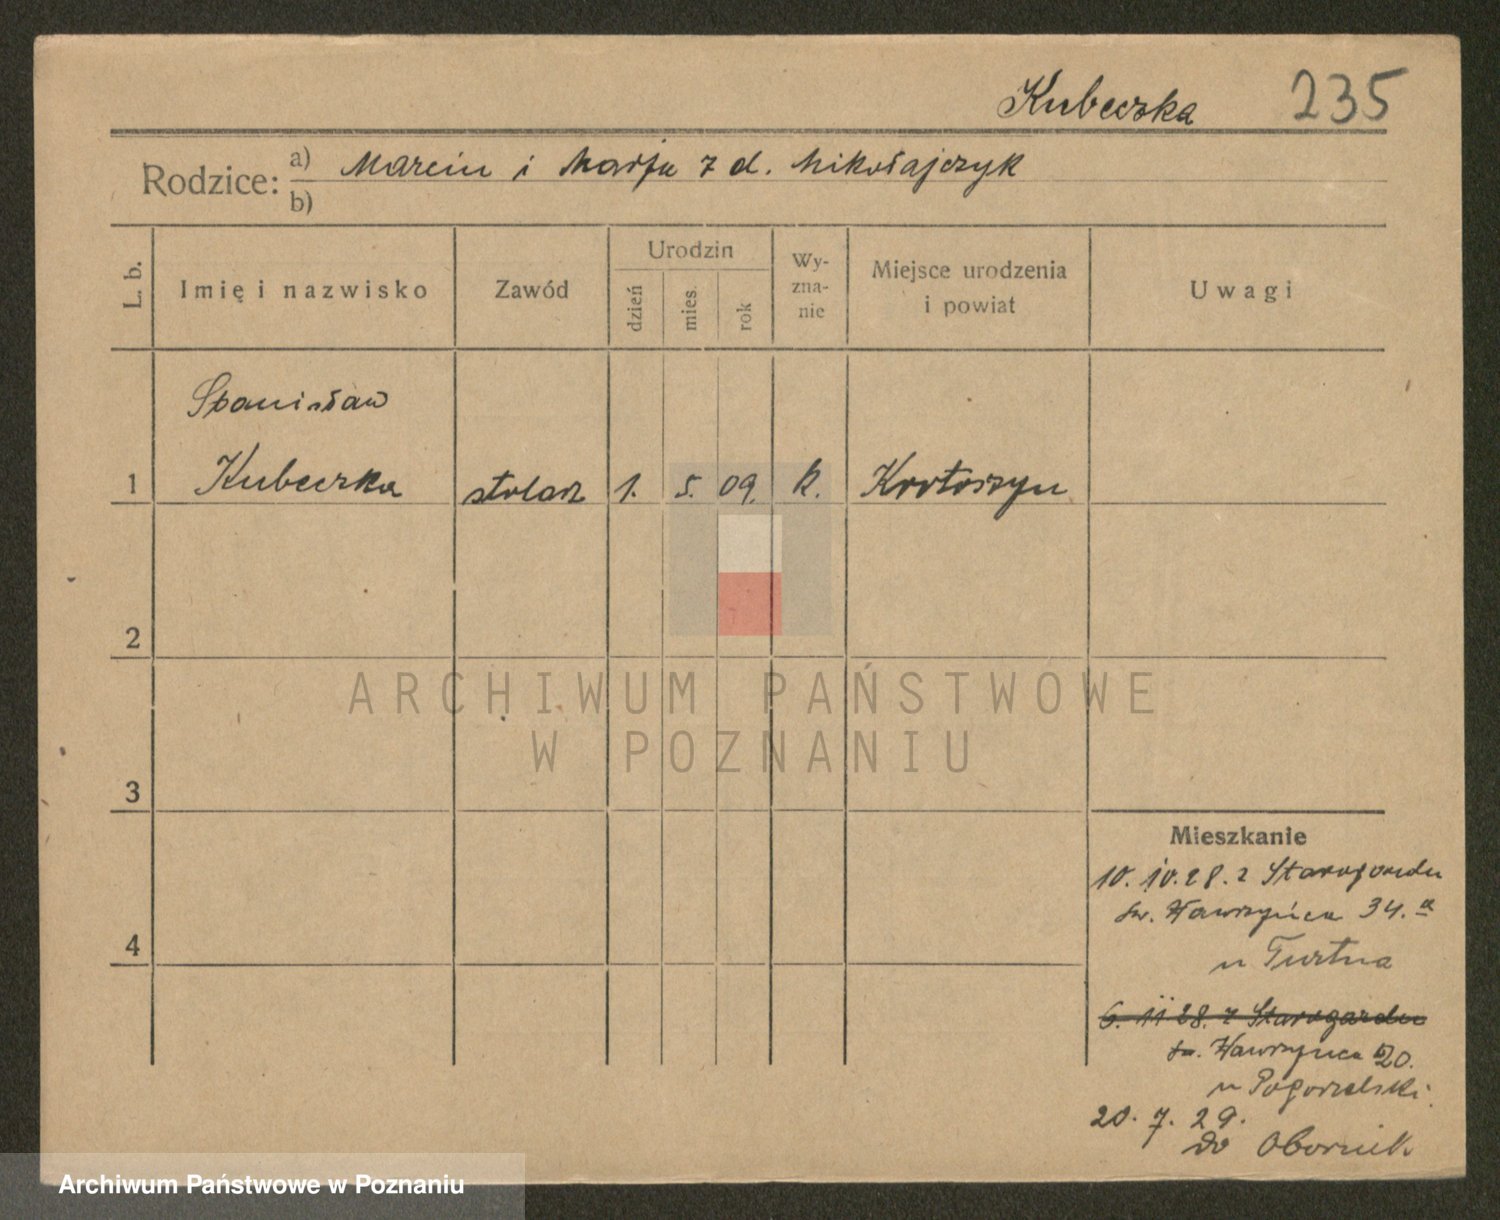 Kubeczka 235
Rodzice: a) Marcin i Marja z d. Mikołajczyk
b)
L. b.
Imię i nazwisko
Zawód
Urodzin
dzień
mies.
rok
Wy-
zna-
nie
Miejsce urodzenia
i powiat
Uwagi
Stanisław
1 Kubeczka stolarz 1. 5. 09. k. Krotoszyn
2
3
4
ARCHIWUM PAŃSTWOWE
W POZNANIU
Mieszkanie
10. 10. 28. z Starogardu
św. Wawrzyńca 34. a
u
6. 11 28. z Starogardu
św. Wawrzyńca 20.
u Pogorzelski.
20. 7. 29.
do Obornik
Archiwum Państwowe w Poznaniu